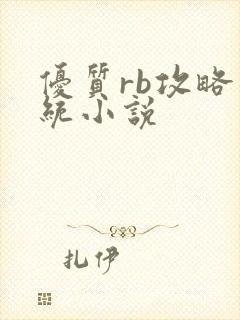 優質rb攻略
統小說
扎伊